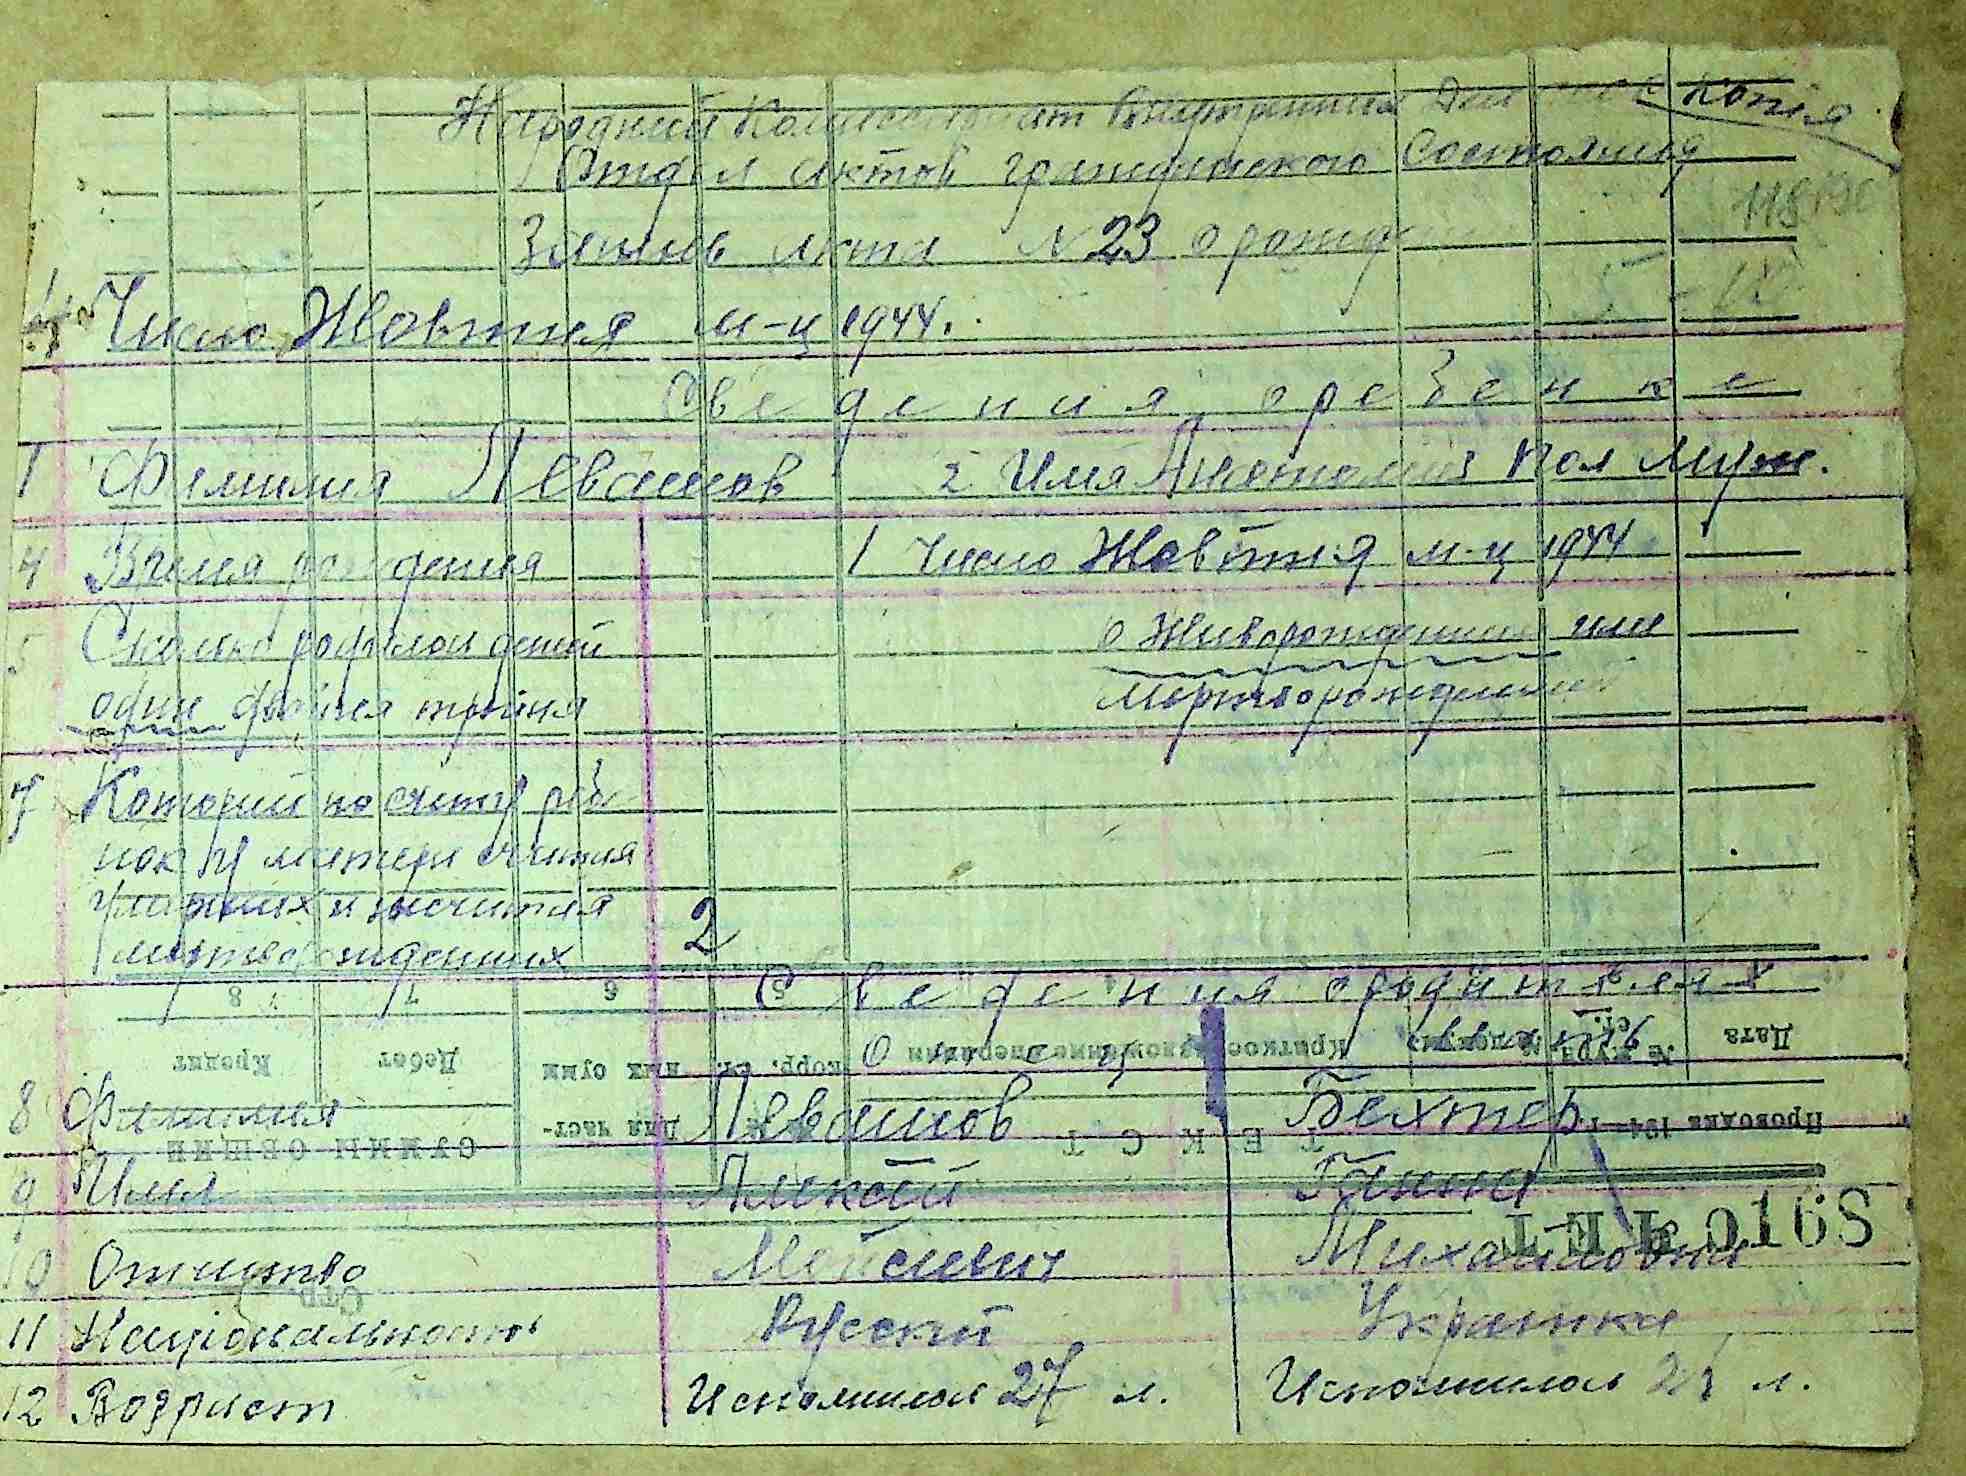 Копія
Народний Комиссариат Внутренних Дел
Отдел актов гражданского Состояния
Запись акта №23 о рожд
Число Жовтня м-ц 1944.
Сведения о ребенке
1 Фамилия Левашов 2 Имя Анатолий пол муж.
4 Время рождения 1 Число Жовтня м-ц 1944
5 Сколько родилось детей о Живорожденный или
один двойня тройня Мертворожденный
7 Которий по счету ребе
нок у матери считая
умерших и несчитая
мертворожденних 2
Сведения о родителях
Отец
8 Фамилия Левашов Бехтер
9 Имя Алексей Ганна
10 Отчество Моисеевич Михайловна
11 Национальность Русский Украинка
12 Возраст Исполнилось 27 л. Исполнилось л.
Дата
№ журн. ст.
Краткое изложение операции
корр. сч.
Дебет
Кредит
6 7 8
Проводка 194 г.
ТЕКСТ
для част-
ных сумм
СУММЫ ОБЩИЕ
Стр